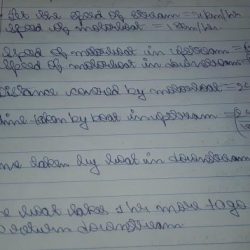 Let the speed of stream = x km/hr
speed of motorboat = 18 km/hr
speed of motorboat in upstream =
speed of motorboat in downstream =
Distance covered by motorboat = 24
time taken by boat in upstream =
me taken by boat in downstream
boat takes 1 hr more to go
return downstream